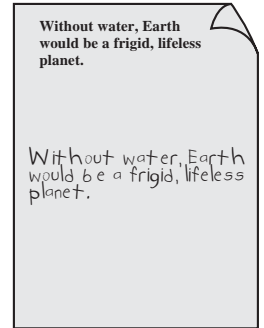 Without water, Earth
would be a frigid, lifeless
planet.
Without water, Earth
would be a frigid, lifeless
planet.